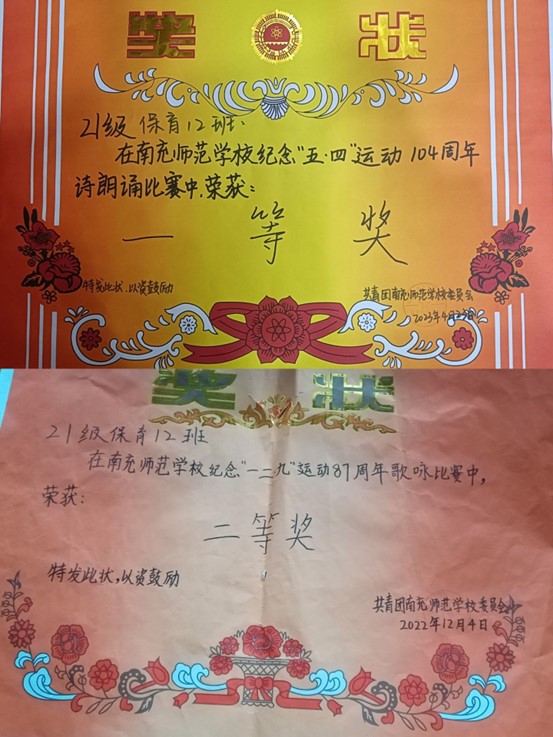 奖 状
21级 保育12班:
在南充师范学校纪念"五·四"运动 104周年
诗朗诵比赛中,荣获:
一 等 奖
特发此状,以资鼓励
共青团南充师范学校委员会
奖 状
21级保育12班
在南充师范学校纪念"一二九"运动87周年歌咏比赛中,
荣获:
二等奖
特发此状,以资鼓励
共青团南充师范学校委员会
2022年12月4日